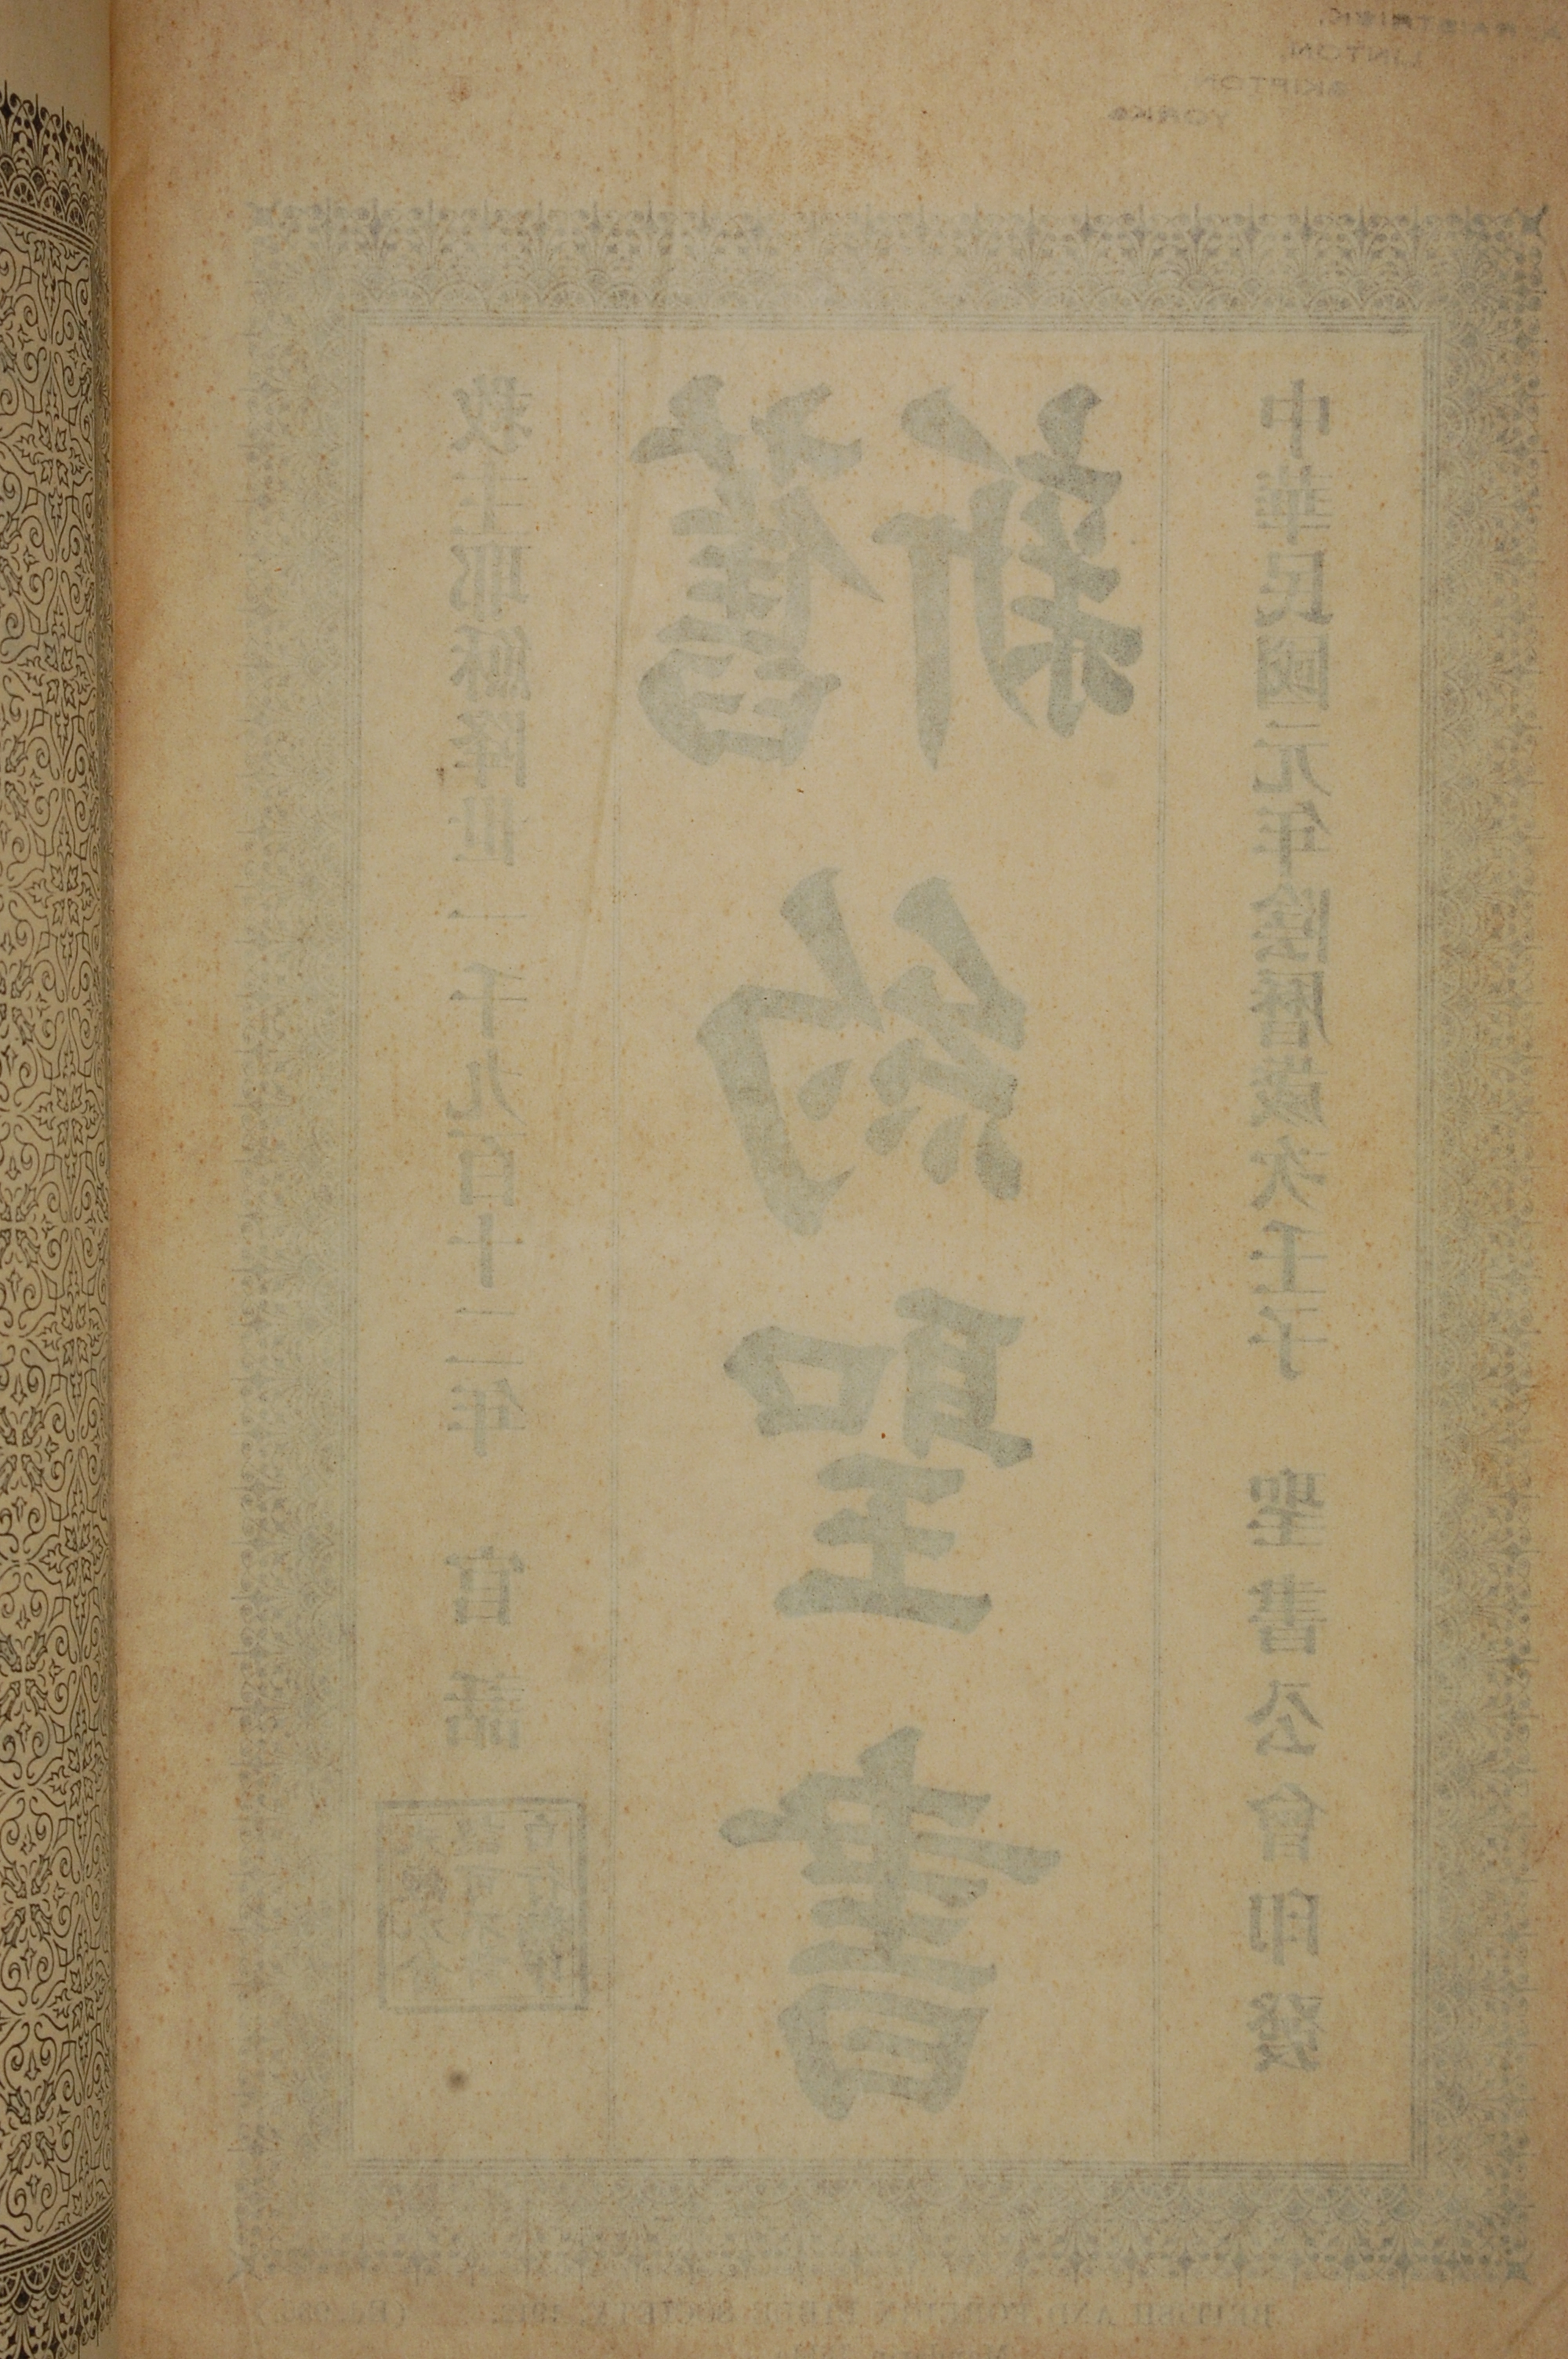 RAISTRICK,
LINTON,
SKIPTON
YORKS
救主耶穌降世一千九百十二年 官話
舊新
約聖書
中華民國元年陰曆歲次壬子 聖書公會印發
BRITISH AND FOREIGN BIBLE SOCIETY,